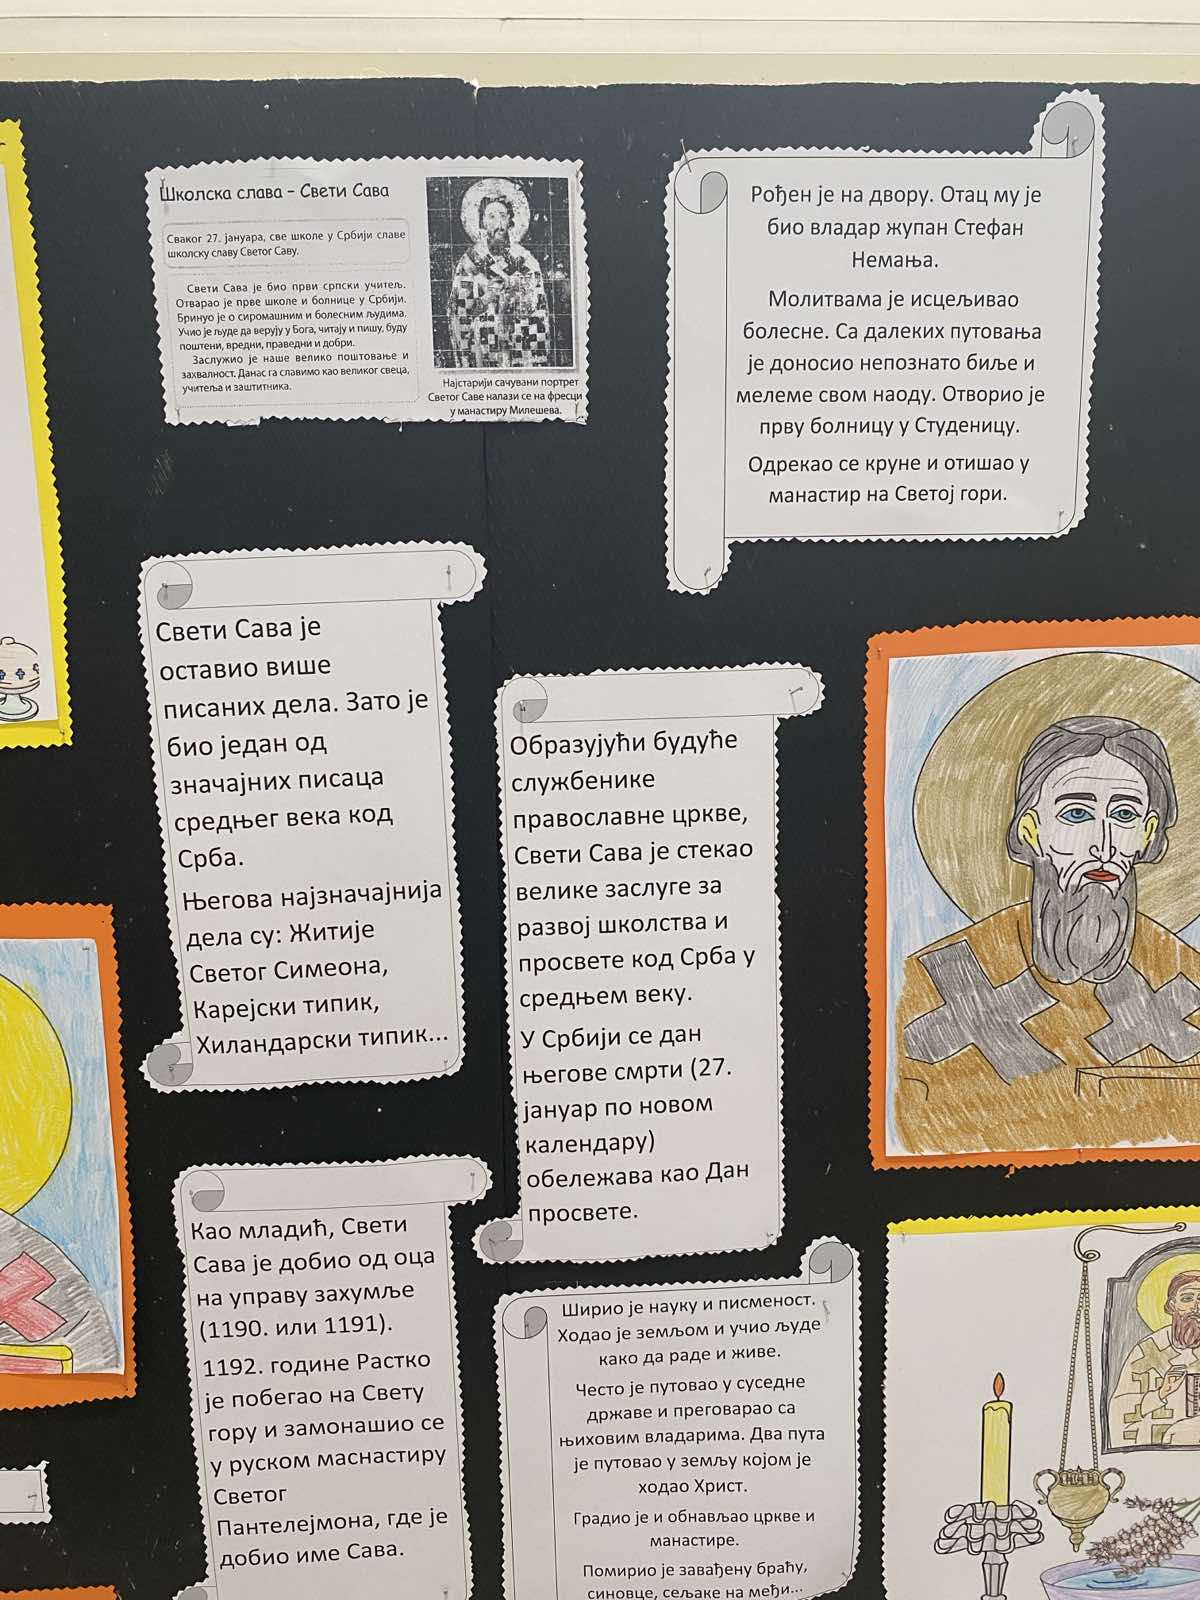 Школска слава – Свети Сава
Сваког 27. јануара, све школе у Србији славе
школску славу Светог Саву.
Свети Сава је био први српски учитељ.
Отварао је прве школе и болнице у Србији.
Бринуо је о сиромашним и болесним људима.
Учио је људе да верују у Бога, читају и пишу, буду
поштени, вредни, праведни и добри.
Заслужио је наше велико поштовање и
захвалност. Данас га славимо као великог свеца,
учитеља и заштитника.
Најстарији сачувани портрет
Светог Саве налази се на фресци
у манастиру Милешева.
Рођен је на двору. Отац му је
био владар жупан Стефан
Немања.
Молитвама је исцељивао
болесне. Са далеких путовања
је доносио непознато биље и
мелеме свом наоду. Отворио је
прву болницу у Студеницу.
Одрекао се круне и отишао у
манастир на Светој гори.
Свети Сава је
оставио више
писаних дела. Зато је
био један од
значајних писаца
средњег века код
Срба.
Његова најзначајнија
дела су: Житије
Светог Симеона,
Карејски типик,
Хиландарски типик...
Образујући будуће
службенике
православне цркве,
Свети Сава је стекао
велике заслуге за
развој школства и
просвете код Срба у
средњем веку.
У Србији се дан
његове смрти (27.
јануар по новом
календару)
обележава као Дан
просвете.
Као младић, Свети
Сава је добио од оца
на управу захумље
(1190. или 1191).
1192. године Растко
је побегао на Свету
гору и замонашио се
у руском маснастиру
Светог
Пантелејмона, где је
добио име Сава.
Ширио је науку и писменост.
Ходао је земљом и учио људе
како да раде и живе.
Често је путовао у суседне
државе и преговарао са
њиховим владарима. Два пута
је путовао у земљу којом је
ходао Христ.
Градио је и обнављао цркве и
манастире.
Помирио је завађену браћу,
синовце, сељаке на међи...